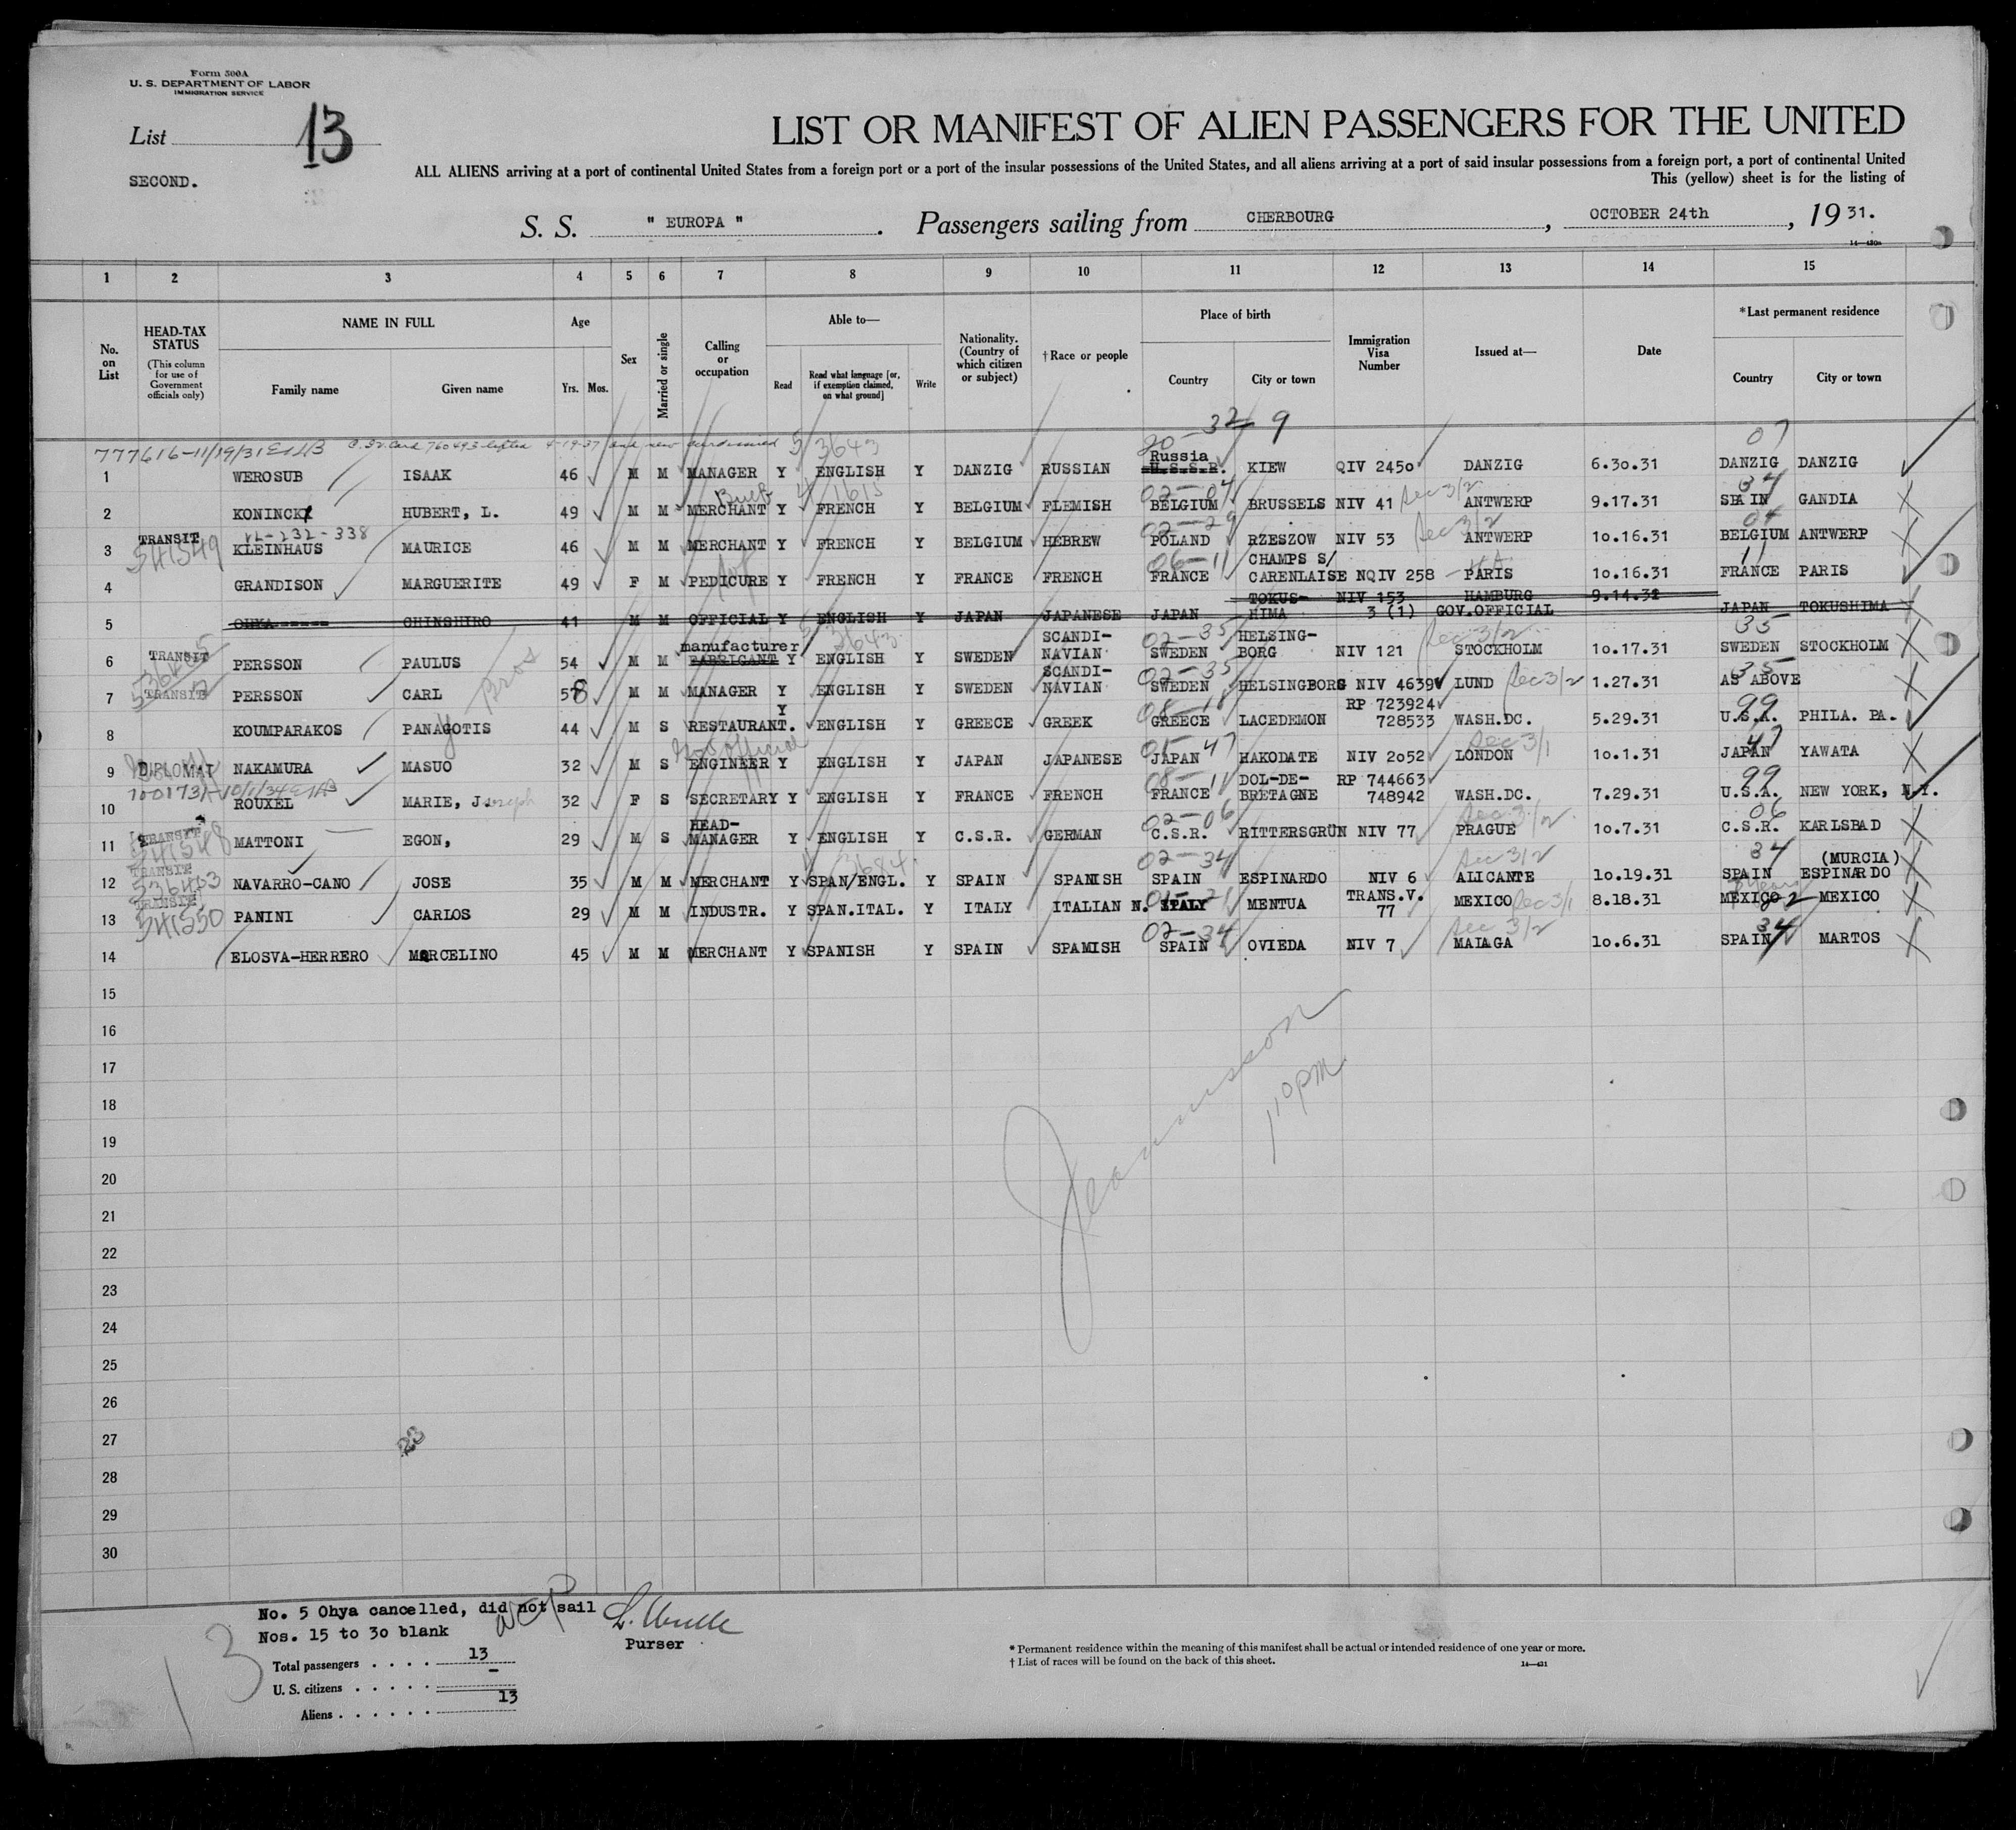 Form 500A
U. S. DEPARTMENT OF LABOR
IMMIGRATION SERVICE
List 13
SECOND.
LIST OR MANIFEST OF ALIEN PASSENGERS FOR THE UNITED
ALL ALIENS arriving at a port of continental United States from a foreign port or a port of the insular possessions of the United States, and all aliens arriving at a port of said insular possessions from a foreign port, a port of continental United
This (yellow) sheet is for the listing of
S. S. " EUROPA ". Passengers sailing from CHERBOURG, OCTOBER 24th, 1931.
1 2 3 4 5 6 7 8 9 10 11 12 13 14 15
No. on List
HEAD-TAX STATUS (This column for use of Government officials only)
NAME IN FULL Family name Given name
Age Yrs. Mos.
Sex
Married or single
Calling or occupation
Able to— Read Read what language [or, if exemption claimed, on what ground] Write
Nationality. (Country of which citizen or subject)
†Race or people
Place of birth Country City or town
Immigration Visa Number
Issued at—
Date
*Last permanent residence Country City or town
32 9
777616-11/19/31 760493 4-19-37 and new 5/3643 20- 07
1 WEROSUB ISAAK 46 M M MANAGER Y ENGLISH Y DANZIG RUSSIAN Russia U.S.S.R. KIEW QIV 2450 DANZIG 6.30.31 DANZIG DANZIG
4/1615 02-04 Sec 3/2 34
2 KONINCKX HUBERT, L. 49 M M MERCHANT Y FRENCH Y BELGIUM FLEMISH BELGIUM BRUSSELS NIV 41 ANTWERP 9.17.31 SPAIN GANDIA
TRANSIT 541549 VL-232-338 02-29 Sec 3/2 04
3 KLEINHAUS MAURICE 46 M M MERCHANT Y FRENCH Y BELGIUM HEBREW POLAND RZESZOW NIV 53 ANTWERP 10.16.31 BELGIUM ANTWERP
06-11 11
4 GRANDISON MARGUERITE 49 F M PEDICURE Y FRENCH Y FRANCE FRENCH FRANCE CHAMPS S/ CARENLAISE NQIV 258 PARIS 10.16.31 FRANCE PARIS
5 OHYA CHINSHIRO 41 M M OFFICIAL Y ENGLISH Y JAPAN JAPANESE JAPAN TOKUS- HIMA NIV 153 3 (1) HAMBURG GOV.OFFICIAL 9.14.31 JAPAN TOKUSHIMA
5/3643 02-35 Sec 3/2 35
6 TRANSIT PERSSON PAULUS 54 M M manufacturer FABRICANT Y ENGLISH Y SWEDEN SCANDI- NAVIAN SWEDEN HELSING- BORG NIV 121 STOCKHOLM 10.17.31 SWEDEN STOCKHOLM
02-35 35
7 TRANSIT PERSSON CARL 58 M M MANAGER Y ENGLISH Y SWEDEN SCANDI- NAVIAN SWEDEN HELSINGBORG NIV 4639 LUND Sec 3/2 1.27.31 AS ABOVE
99
8 KOUMPARAKOS PANAGOTIS 44 M S RESTAURANT. Y ENGLISH Y GREECE GREEK GREECE LACEDEMON RP 723924 728533 WASH.DC. 5.29.31 U.S.A. PHILA. PA.
Gov official 01-47 Sec 3/1 47
9 DIPLOMAT NAKAMURA MASUO 32 M S ENGINEER Y ENGLISH Y JAPAN JAPANESE JAPAN HAKODATE NIV 2052 LONDON 10.1.31 JAPAN YAWATA
08-11 99
10 ROUXEL MARIE, Joseph 32 F S SECRETARY Y ENGLISH Y FRANCE FRENCH FRANCE DOL-DE- BRETAGNE RP 744663 748942 WASH.DC. 7.29.31 U.S.A. NEW YORK, N.Y.
02-06 Sec 3/2 06
11 TRANSIT 541548 MATTONI EGON, 29 M S HEAD- MANAGER Y ENGLISH Y C.S.R. GERMAN C.S.R. RITTERSGRÜN NIV 77 PRAGUE 10.7.31 C.S.R. KARLSBAD
02-34 Sec 3/2 34
12 TRANSIT 536403 NAVARRO-CANO JOSE 35 M M MERCHANT Y SPAN/ENGL. Y SPAIN SPANISH SPAIN ESPINARDO NIV 6 ALICANTE 10.19.31 SPAIN (MURCIA) ESPINARDO
13 TRANSIT 541550 PANINI CARLOS 29 M M INDUSTR. Y SPAN.ITAL. Y ITALY ITALIAN N. ITALY MENTUA TRANS.V. 77 MEXICO Sec 3/1 8.18.31 MEXICO MEXICO
02-34 Sec 3/2 34
14 ELOSVA-HERRERO MARCELINO 45 M M MERCHANT Y SPANISH Y SPAIN SPAMISH SPAIN OVIEDA NIV 7 MALAGA 10.6.31 SPAIN MARTOS
15
16
17
18
19
20
21
22
23
24
25
26
27
28
29
30
110 PM
23
No. 5 Ohya cancelled, did not sail
Nos. 15 to 30 blank
Purser
Total passengers . . . . 13
U. S. citizens . . . . . -
Aliens . . . . . . 13
13
* Permanent residence within the meaning of this manifest shall be actual or intended residence of one year or more.
† List of races will be found on the back of this sheet.
14—431